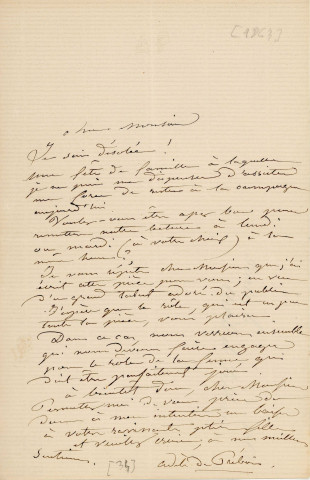 [1863]
Cher Monsieur
Je suis désolée !
une fête de famille à laquelle
je ne puis me dispenser d'assister
me force de rester à la campagne
aujourd'hui
Voulez-vous être assez bon pour
remettre notre lecture à lundi
ou mardi (à votre choix) à la
même heure ?
Je vous répète, cher Monsieur que j'ai
écrit cette pièce pour vous ; en vue
d'un grand talent adoré du public
J'espère que le rôle, qui est
toute la pièce, vous plaira.
Dans ce cas, nous verrions ensemble
qui nous devons faire engager
pour le rôle de la femme qui
doit être parfaitement joué.
à bientôt donc, cher Monsieur
Permettez moi de vous prier de
donner à mon intention un baiser
à votre ravissante petite fille
et veuillez croire à mes meilleurs
Sentiments.
[34]
Adèle de